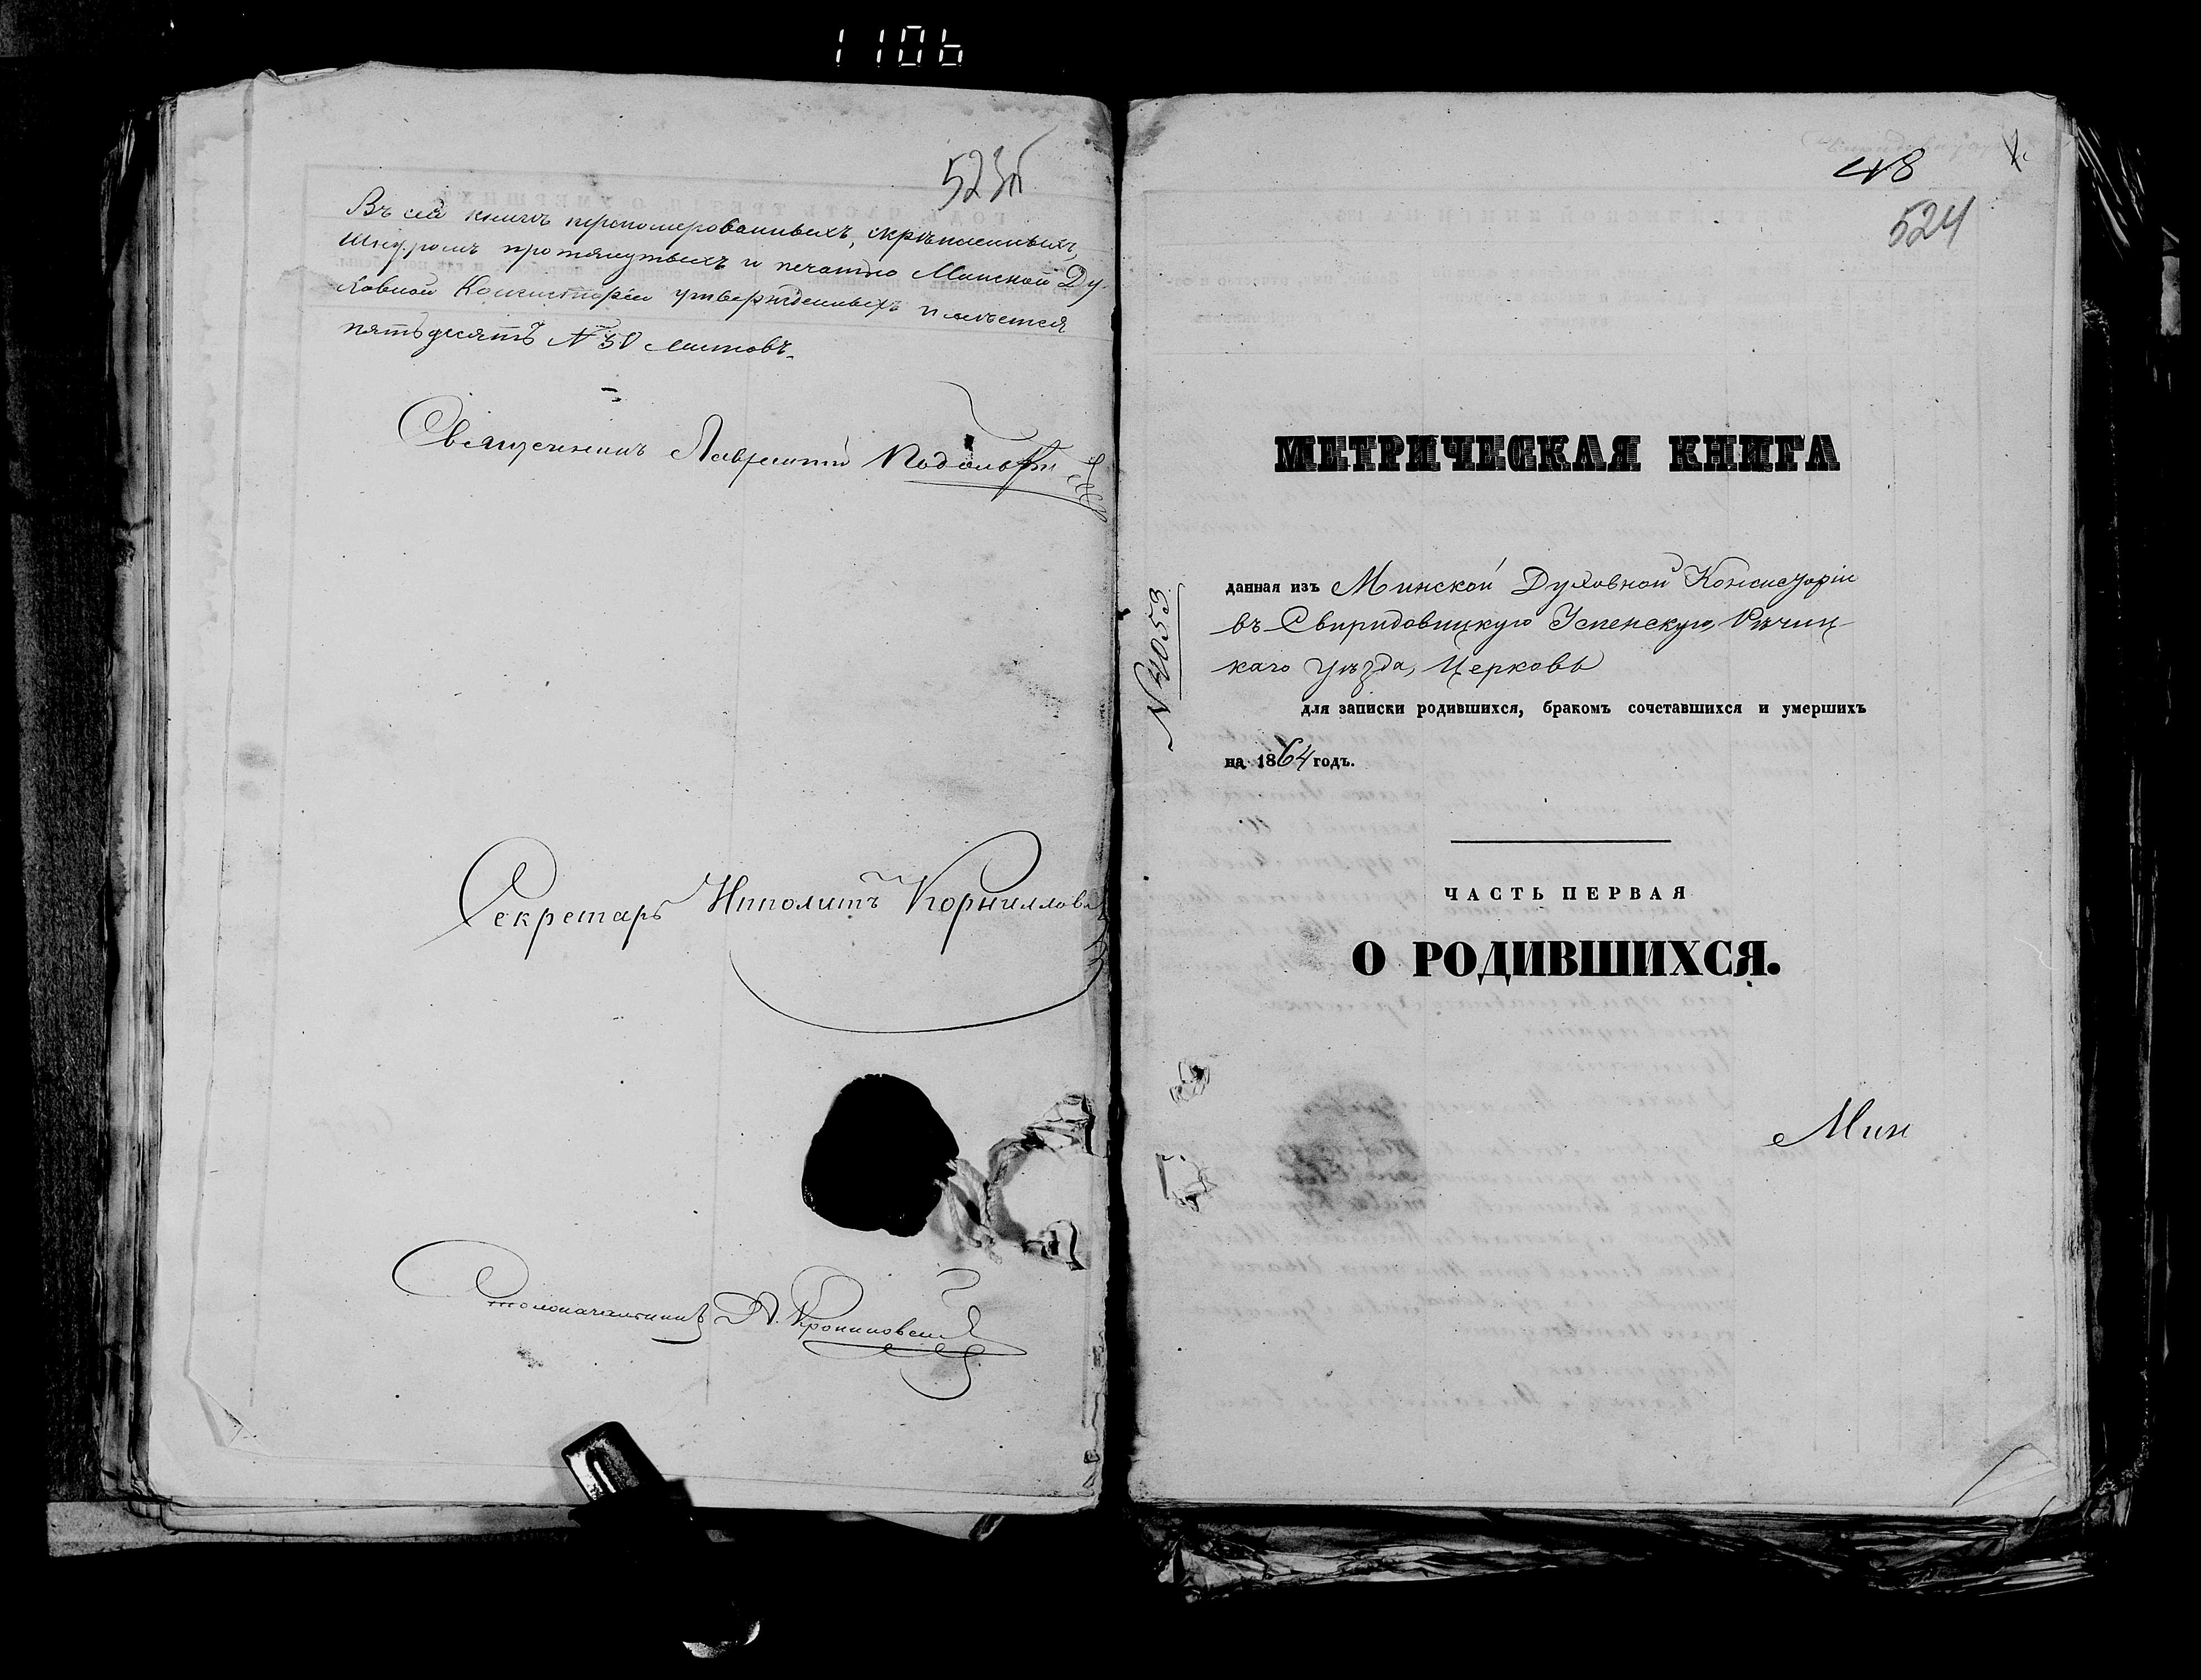 1106
523б
Въ сей книгѣ перономерованныхъ, скрѣпленныхъ,
Шнуромъ протянутыхъ и печатью Минской Ду-
ховной Консисторіи утвержденныхъ имѣется
пятьдесятъ № 50 листовъ.
Священникъ Лаврентій
Секретарь Ипполитъ Корниллов
Столоначальникъ А.
№8
524
МЕТРИЧЕСКАЯ КНИГА
№ 4053
данная изъ Минской Духовной Консисторіи
въ Свиридовицкую Успенскую, Рѣчиц-
каго уѣзда, Церковь
для записки родившихся, бракомъ сочетавшихся и умершихъ
на 1864 годъ.
ЧАСТЬ ПЕРВАЯ
О РОДИВШИХСЯ.
Мин